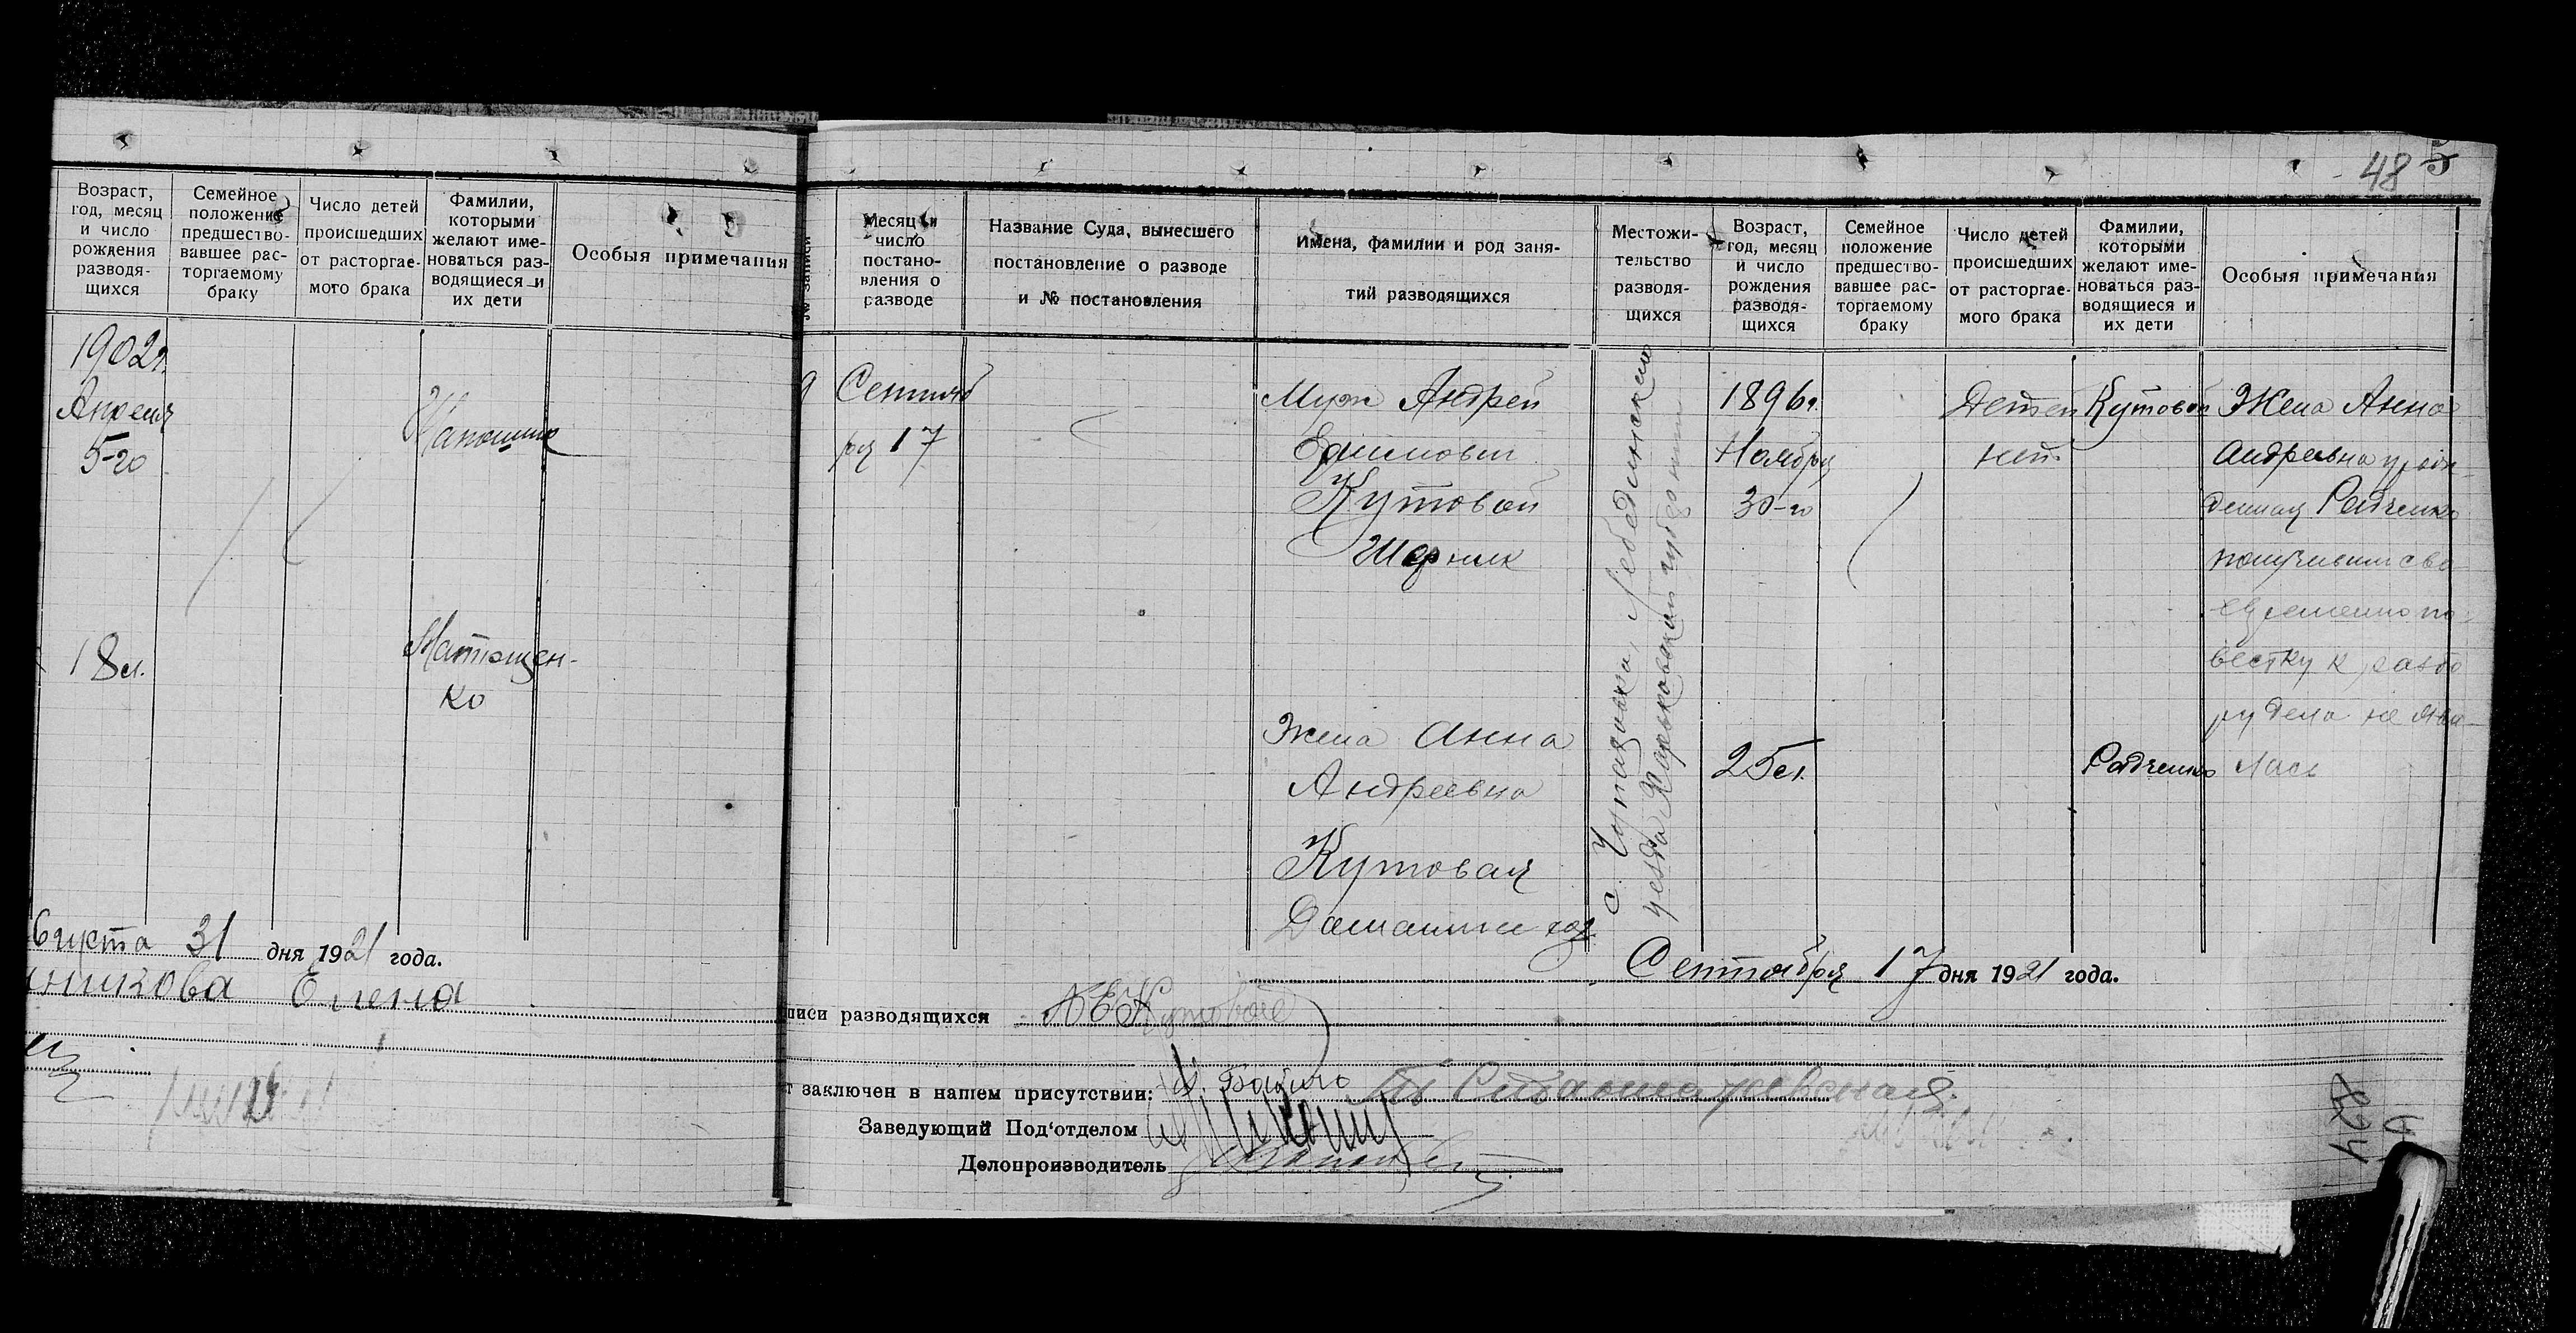 48 5
Возраст,
год, месяц
и число
рождения
разводя-
щихся
Семейное
положение
предшество-
вавшее рас-
торгаемому
браку
Число детей
происшедших
от расторгае-
мого брака
Фамилии,
которыми
желают име-
новаться раз-
водящиеся и
их дети
Особыя примечания
1902 г.
Апреля
5-го
18 л.
Матющен-
ко
августа 31 дня 1921 года.
Елена
№ записи
Месяц и
число
постано-
вления о
разводе
Название Суда, вынесшего
постановление о разводе
и № постановления
Имена, фамилии и род заня-
тий разводящихся
Местожи-
тельство
разводя-
щихся
Возраст,
год, месяц
и число
рождения
разводя-
щихся
Семейное
положение
предшество-
вавшее рас-
торгаемому
браку
Число детей
происшедших
от расторгае-
мого брака
Фамилии,
которыми
желают име-
новаться раз-
водящиеся и
их дети
Особыя примечания
9
Сентяб
ря 17
Муж Андрей
Ефимович
Кутовой
Жена Анна
Андреевна
Кутовая
с. Лебединского
уезда Харьковской губернии
1896 г.
Ноября
30-го
25 л.
Детей
нет.
Кутовой
Радченко
Жена Анна
Андреевна урож
денная Радченко
получивши сво
евременно по-
вестку к разбо
ру дела не яви-
лась
Сентября 17 дня 1921 года.
писи разводящихся А Е Кутовой
т заключен в нашем присутствии:
Заведующий Под'отделом
Делопроизводитель